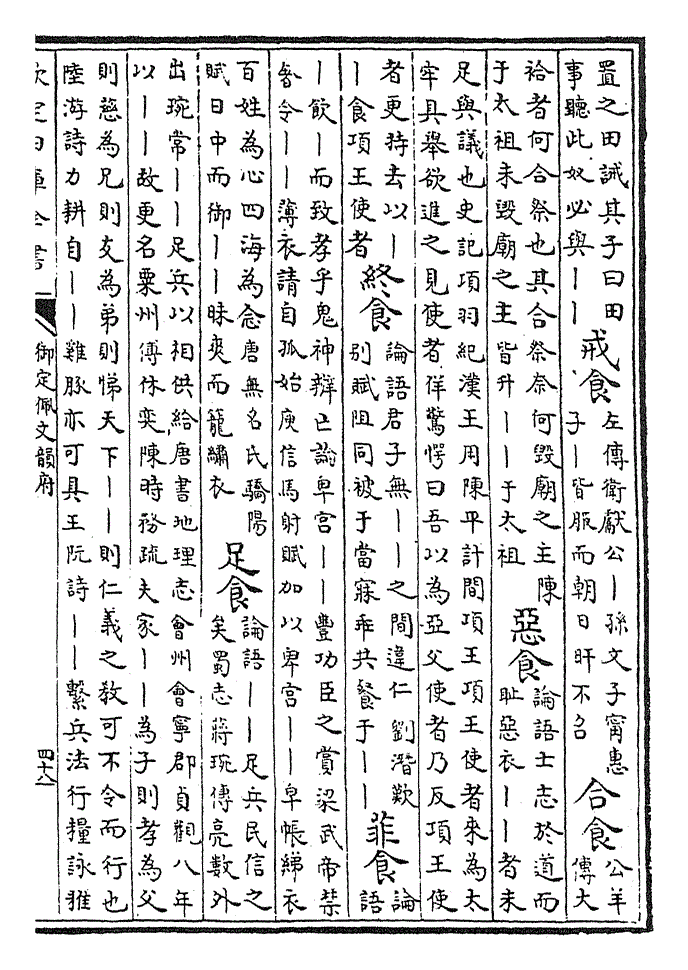 置之田誡其子曰田
事聽此奴必與丨丨
戒食
左傳衛獻公丨孫文子甯惠
子丨皆服而朝日旰不召
合食
公羊
傳大
祫者何合祭也其合祭奈何毀廟之主陳
于太祖未毀廟之主皆升丨丨于太祖
惡食
論語士志於道而
恥惡衣丨丨者未
足與議也史記項羽紀漢王用陳平計間項王項王使者來為太
牢具舉欲進之見使者佯驚愕曰吾以為亞父使者乃反項王使
者更持去以丨
丨食項王使者
終食
論語君子無丨丨之間違仁劉潛歎
別賦阻同被于當寐乖共餐于丨丨
菲食
論
語
丨飲丨而致孝乎鬼神辯亡論卑宫丨丨豐功臣之賞梁武帝禁
奢令丨丨薄衣請自孤始庾信馬射賦加以卑宫丨丨皁帳綈衣
百姓為心四海為念唐無名氏驕陽
賦日中而御丨丨昧爽而籠繡衣
足食
論語丨丨足兵民信之
矣蜀志蔣琬傳亮數外
出琬常丨丨足兵以相供給唐書地理志會州會寧郡貞觀八年
以丨丨故更名粟州傅休奕陳時務疏夫家丨丨為子則孝為父
則慈為兄則友為弟則悌天下丨丨則仁義之教可不令而行也
陸游詩力耕自丨丨雞豚亦可具王阮詩丨丨繫兵法行糧詠雅
欽定四庫全書
御定佩文韻府
四十八